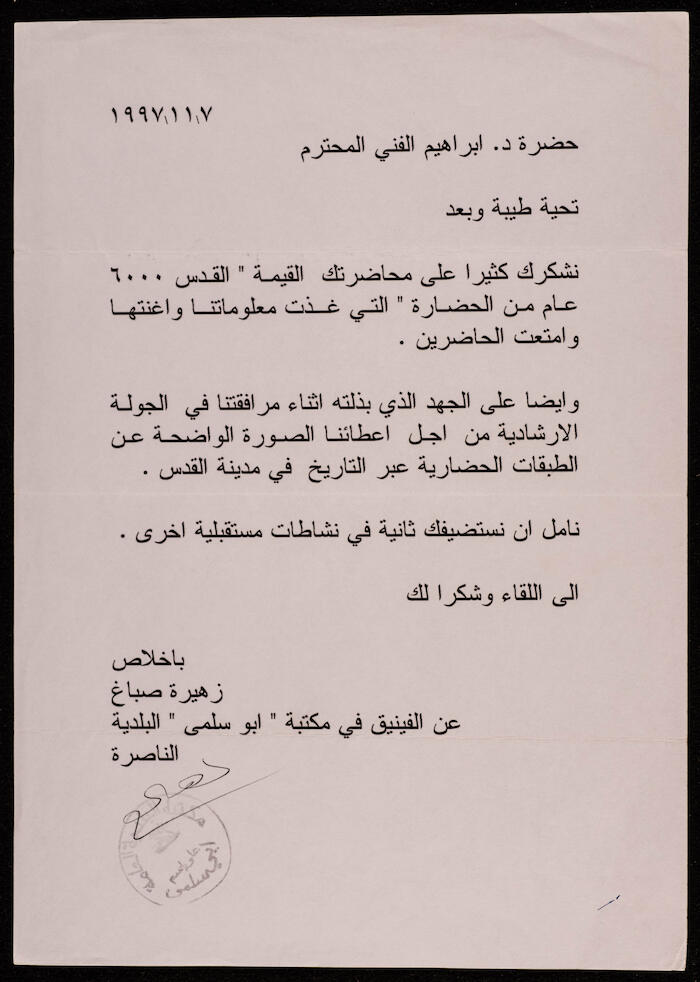 ١٩٩٧/١١/٧
حضرة د. ابراهيم الفني المحترم
تحية طيبة وبعد
نشكرك كثيرا على محاضرتك القيمة " القدس ٦٠٠٠
عام من الحضارة " التي غذت معلوماتنا واغنتها
وامتعت الحاضرين .
وايضا على الجهد الذي بذلته اثناء مرافقتنا في الجولة
الارشادية من اجل اعطائنا الصورة الواضحة عن
الطبقات الحضارية عبر التاريخ في مدينة القدس .
نامل ان نستضيفك ثانية في نشاطات مستقبلية اخرى .
الى اللقاء وشكرا لك
باخلاص
زهيرة صباغ
عن الفينيق في مكتبة " ابو سلمى " البلدية
الناصرة
على اسم
ابي سلمى